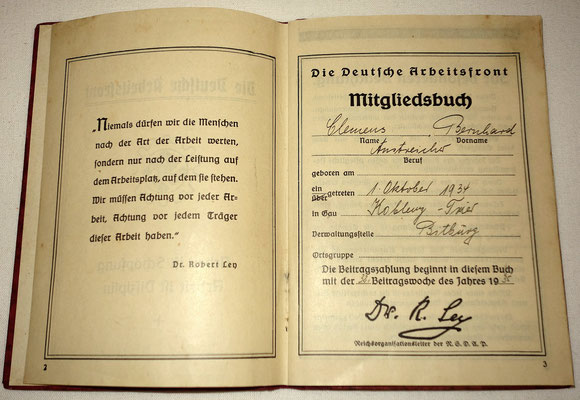 „Niemals dürfen wir die Menschen
nach der Art der Arbeit werten,
sondern nur nach der Leistung auf
dem Arbeitsplatz, auf dem sie stehen.
Wir müssen Achtung vor jeder Ar-
beit, Achtung vor jedem Träger
dieser Arbeit haben.“
Dr. Robert Ley
2
Die Deutsche Arbeitsfront
Mitgliedsbuch
Clemens, Bernhard
Name Vorname
Anstreicher
Beruf
geboren am
ein
über getreten 1. Oktober 1934
in Gau Koblenz-Trier
Verwaltungsstelle Bitburg
Ortsgruppe
Die Beitragszahlung beginnt in diesem Buch
mit der Beitragswoche des Jahres 19
Dr. R. Ley
Reichsorganisationsleiter der N.S.D.A.P.
3